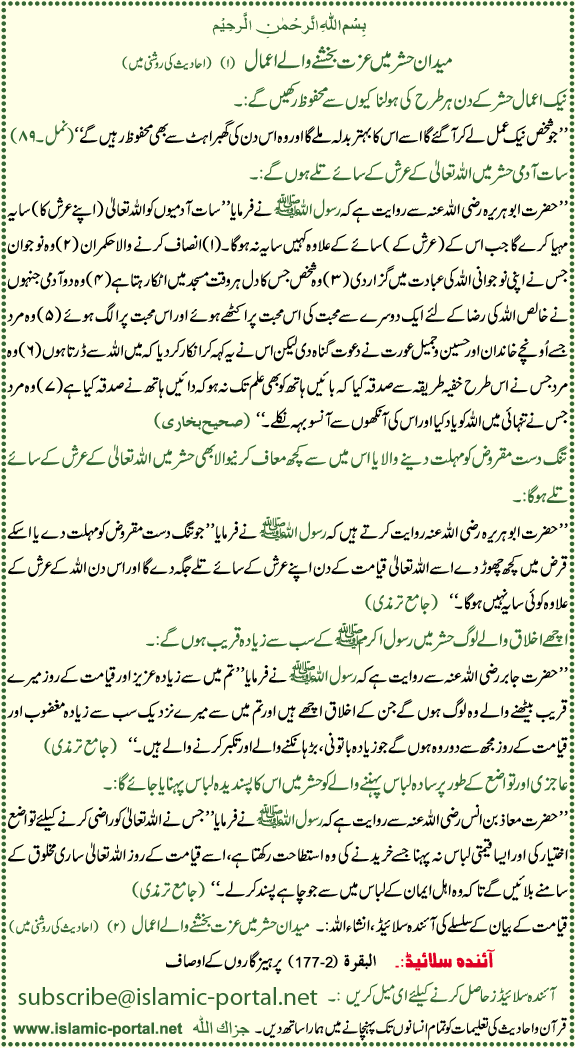 بِسْمِ اللهِ الرَّحْمٰنِ الرَّحِيْمِ
میدان حشر میں عزت بخشنے والے اعمال (۱) (احادیث کی روشنی میں)
نیک اعمال حشر کے دن ہر طرح کی ہولناکیوں سے محفوظ رکھیں گے :۔
’’جو شخص نیک عمل لے کر آئے گا اسے اس کا بہتر بدلہ ملے گا اور وہ اس دن کی گھبراہٹ سے بھی محفوظ رہیں گے‘‘ (نمل۔۸۹)
سات آدمی حشر میں اللہ تعالیٰ کے عرش کے سائے تلے ہوں گے :۔
’’حضرت ابو ہریرہ رضی اللہ عنہ سے روایت ہے کہ رسول اللہ ﷺ نے فرمایا ’’سات آدمیوں کو اللہ تعالیٰ (اپنے عرش کا) سایہ
مہیا کرے گا جب اس کے (عرش کے) سائے کے علاوہ کہیں سایہ نہ ہوگا۔ (۱) انصاف کرنے والا حکمران (۲) وہ نوجوان
جس نے اپنی نوجوانی اللہ کی عبادت میں گزار دی (۳) وہ شخص جس کا دل ہر وقت مسجد میں اٹکا رہتا ہے (۴) وہ دو آدمی جنہوں
نے خالص اللہ کی رضا کے لئے ایک دوسرے سے محبت کی اس محبت پر اکٹھے ہوئے اور اس محبت پر الگ ہوئے (۵) وہ مرد
جسے اُونچے خاندان اور حسین و جمیل عورت نے دعوت گناہ دی لیکن اس نے یہ کہہ کر انکار کر دیا کہ میں اللہ سے ڈرتا ہوں (۶) وہ
مرد جس نے اس طرح خفیہ طریقہ سے صدقہ کیا کہ بائیں ہاتھ کو بھی علم تک نہ ہو کہ دائیں ہاتھ نے صدقہ کیا ہے (۷) وہ مرد
جس نے تنہائی میں اللہ کو یاد کیا اور اس کی آنکھوں سے آنسو بہہ نکلے۔‘‘ (صحیح بخاری)
تنگ دست مقروض کو مہلت دینے والا یا اس میں سے کچھ معاف کرنیوالا بھی حشر میں اللہ تعالیٰ کے عرش کے سائے
تلے ہوگا :۔
’’حضرت ابو ہریرہ رضی اللہ عنہ روایت کرتے ہیں کہ رسول اللہ ﷺ نے فرمایا ’’جو تنگ دست مقروض کو مہلت دے یا اسکے
قرض میں کچھ چھوڑ دے اسے اللہ تعالیٰ قیامت کے دن اپنے عرش کے سائے تلے جگہ دے گا اور اس دن اللہ کے عرش کے
علاوہ کوئی سایہ نہیں ہوگا۔‘‘ (جامع ترمذی)
اچھے اخلاق والے لوگ حشر میں رسول اکرم ﷺ کے سب سے زیادہ قریب ہوں گے :۔
’’حضرت جابر رضی اللہ عنہ سے روایت ہے کہ رسول اللہ ﷺ نے فرمایا ’’تم میں سے زیادہ عزیز اور قیامت کے روز میرے
قریب بیٹھنے والے وہ لوگ ہوں گے جن کے اخلاق اچھے ہیں اور تم میں سے میرے نزدیک سب سے زیادہ مغضوب اور
قیامت کے روز مجھ سے دور وہ ہوں گے جو زیادہ باتونی، بڑ ہانکنے والے اور تکبر کرنے والے ہیں۔‘‘ (جامع ترمذی)
عاجزی اور تواضع کے طور پر سادہ لباس پہننے والے کو حشر میں اس کا پسندیدہ لباس پہنایا جائے گا :۔
’’حضرت معاذ بن انس رضی اللہ عنہ سے روایت ہے کہ رسول اللہ ﷺ نے فرمایا ’’جس نے اللہ تعالیٰ کو راضی کرنے کیلئے تواضع
اختیار کی اور ایسا قیمتی لباس نہ پہنا جسے خریدنے کی وہ استطاعت رکھتا ہے، اسے قیامت کے روز اللہ تعالیٰ ساری مخلوق کے
سامنے بلائیں گے تاکہ وہ اہل ایمان کے لباس میں سے جو چاہے پسند کرلے۔‘‘ (جامع ترمذی)
قیامت کے بیان کے سلسلے کی آئندہ سلائیڈ، انشاء اللہ :۔ میدان حشر میں عزت بخشنے والے اعمال (۲) (احادیث کی روشنی میں)
آئندہ سلائیڈ:۔ البقرۃ (2-177) پرہیزگاروں کے اوصاف
آئندہ سلائیڈز حاصل کرنے کیلئے ای میل کریں :۔ subscribe@islamic-portal.net
قرآن و احادیث کی تعلیمات کو تمام انسانوں تک پہنچانے میں ہمارا ساتھ دیں۔ جزاک اللہ www.islamic-portal.net